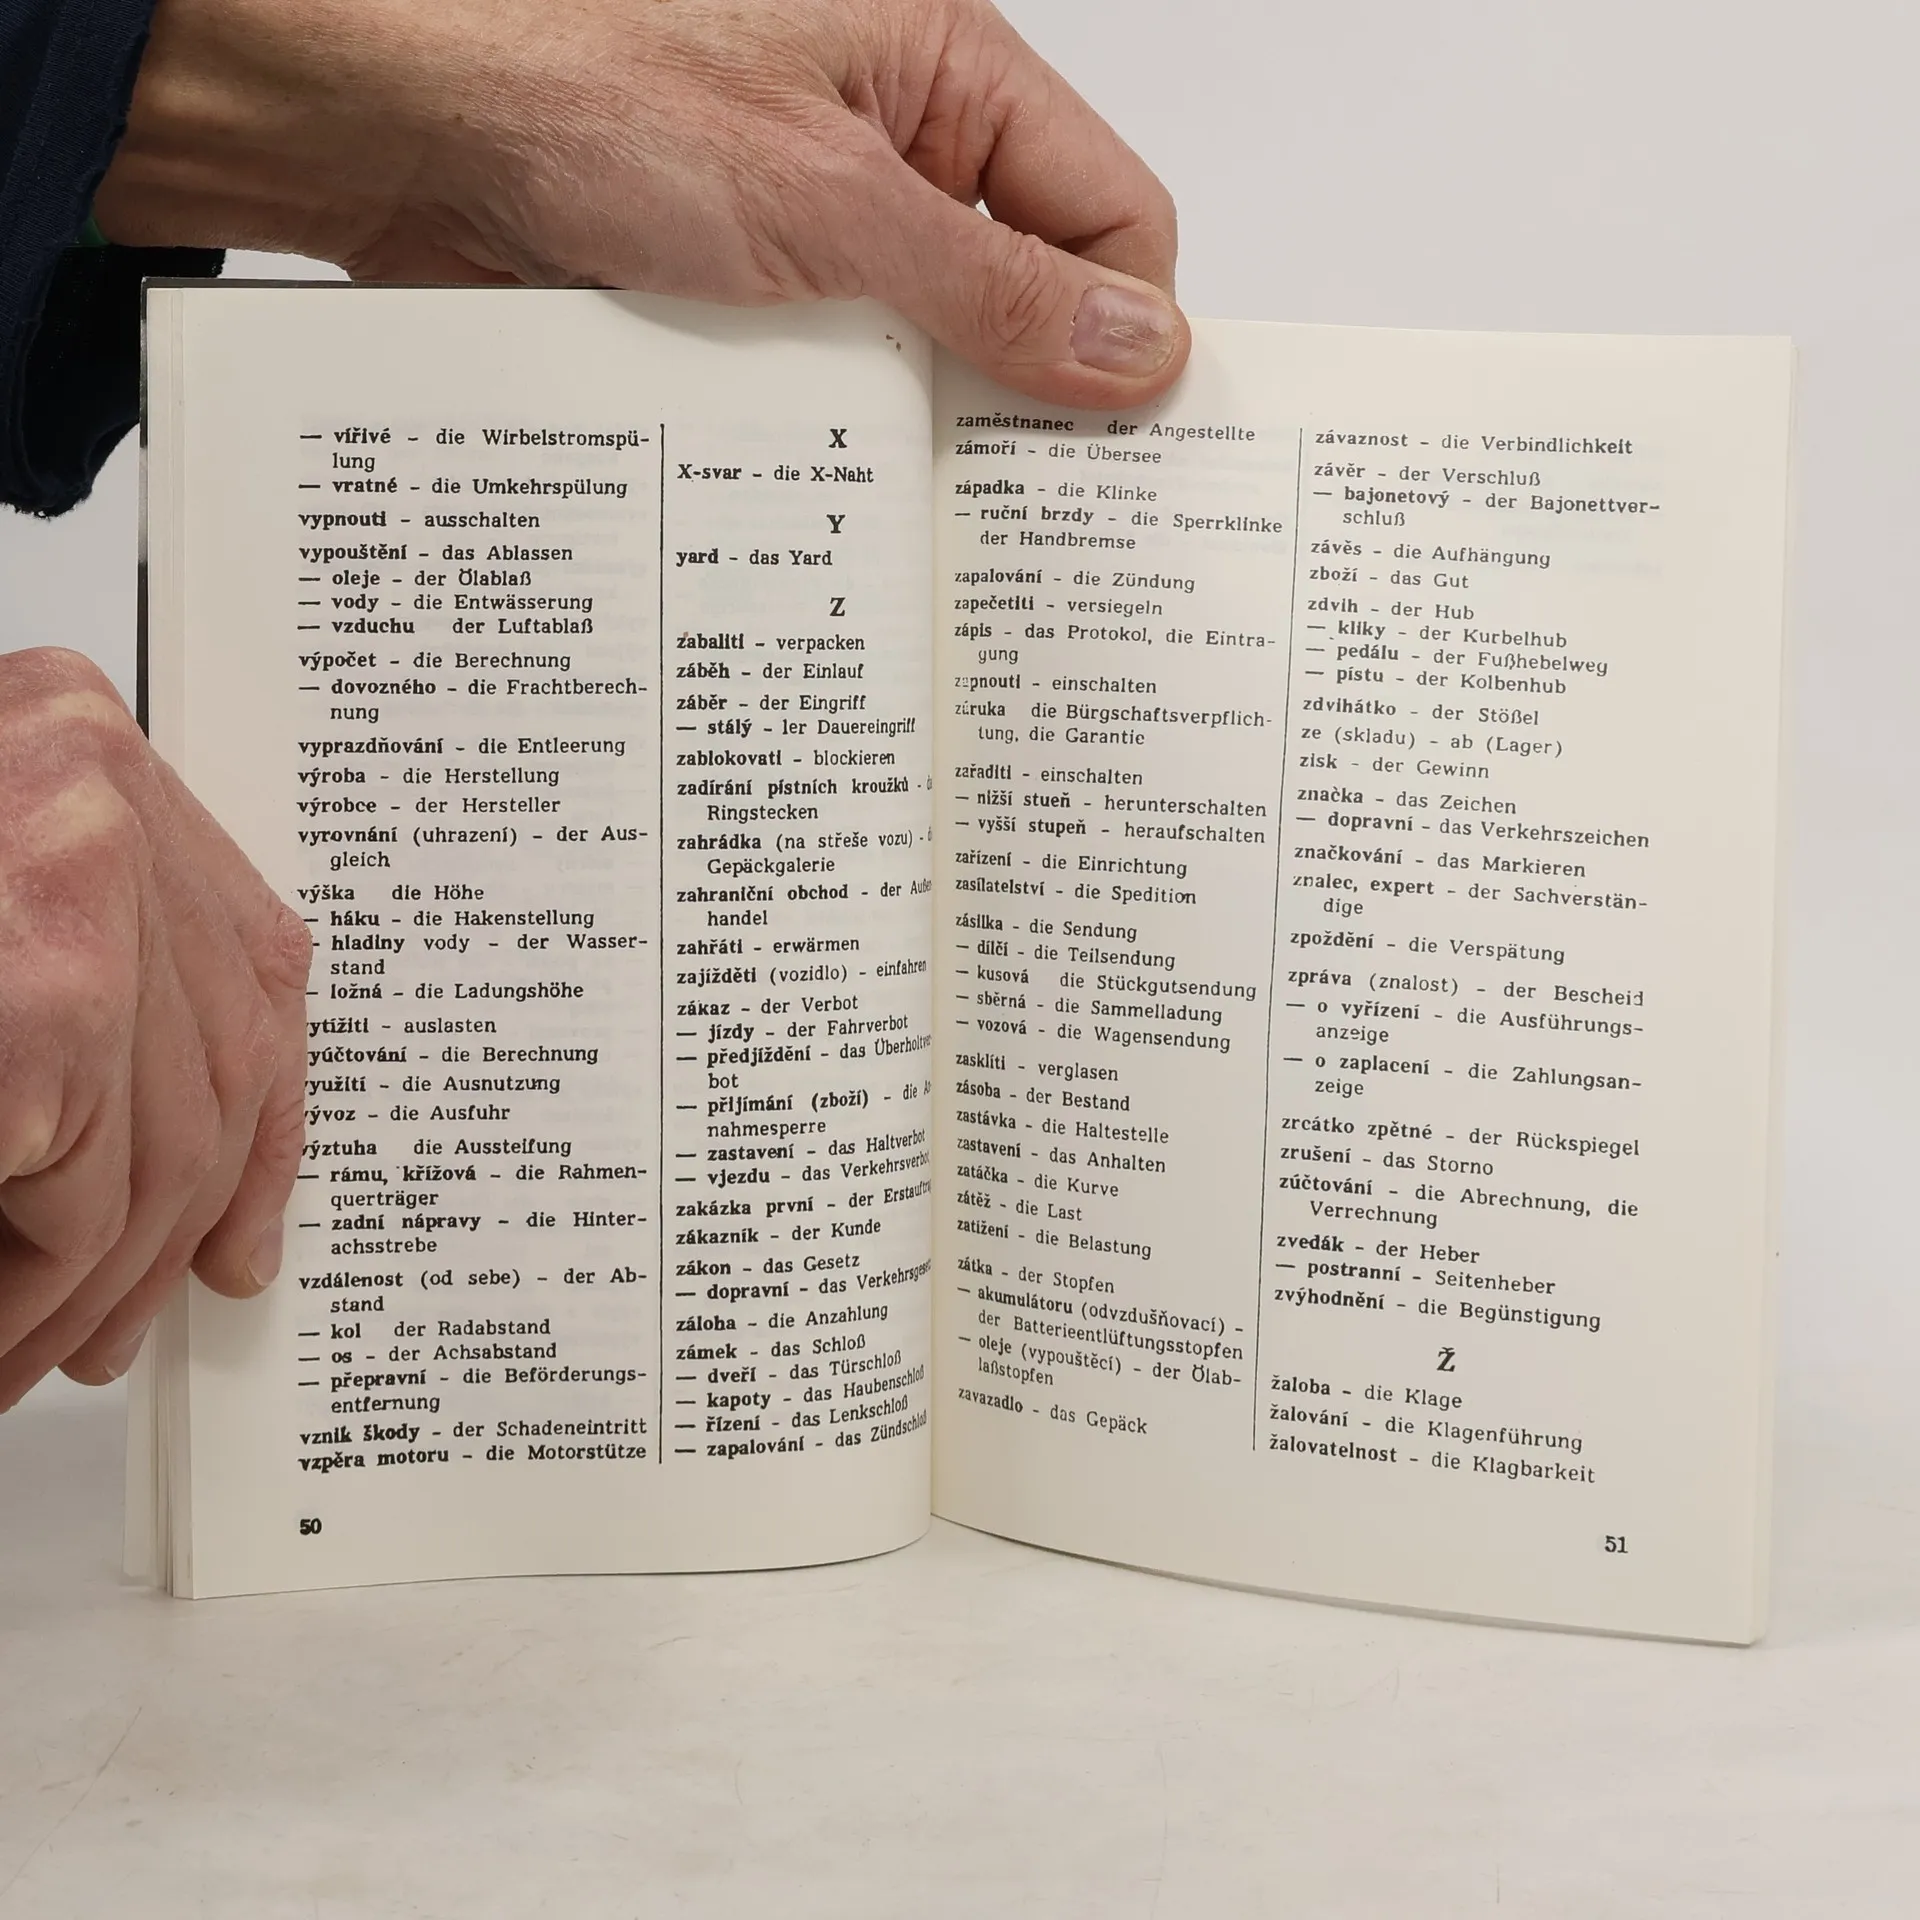 — vířivé - die Wirbelstromspü-
lung
— vratné - die Umkehrspülung
vypnouti - ausschalten
vypouštění - das Ablassen
— oleje - der Ölablaß
— vody - die Entwässerung
— vzduchu der Luftablaß
výpočet - die Berechnung
— dovozného - die Frachtberech-
nung
vyprazdňování - die Entleerung
výroba - die Herstellung
výrobce - der Hersteller
vyrovnání (uhrazení) - der Aus-
gleich
výška die Höhe
— háku - die Hakenstellung
- hladiny vody - der Wasser-
stand
— ložná - die Ladungshöhe
ytížiti - auslasten
yúčtování - die Berechnung
yužití - die Ausnutzung
ývoz - die Ausfuhr
ýztuha die Aussteifung
— rámu, křížová - die Rahmen-
querträger
— zadní nápravy - die Hinter-
achsstrebe
vzdálenost (od sebe) - der Ab-
stand
— kol der Radabstand
— os - der Achsabstand
— přepravní - die Beförderungs-
entfernung
vznik škody - der Schadeneintritt
vzpěra motoru - die Motorstütze
50
X
X-svar - die X-Naht
Y
yard - das Yard
Z
zabaliti - verpacken
záběh - der Einlauf
záběr - der Eingriff
— stálý - ler Dauereingriff
zablokovati - blockieren
zadírání pístních kroužků -
Ringstecken
zahrádka (na střeše vozu) -
Gepäckgalerie
zahraniční obchod - der Außen
handel
zahřáti - erwärmen
zajížděti (vozidlo) - einfahren
zákaz - der Verbot
— jízdy - der Fahrverbot
— předjíždění - das Überholtver
bot
— přijímání (zboží) - die
nahmesperre
— zastavení - das Haltverbot
— vjezdu - das Verkehrsverbot
zakázka první - der Erstauftrag
zákazník - der Kunde
zákon - das Gesetz
— dopravní - das Verkehrsgesetz
záloha - die Anzahlung
zámek - das Schloß
— dveří - das Türschloß
— kapoty - das Haubenschloß
— řízení - das Lenkschloß
— zapalování - das Zündschloß
zaměstnanec der Angestellte
zámoří - die Übersee
západka - die Klinke
— ruční brzdy - die Sperrklinke
der Handbremse
zapalování - die Zündung
zapečetiti - versiegeln
zápis - das Protokol, die Eintra-
gung
zapnouti - einschalten
záruka die Bürgschaftsverpflich-
tung, die Garantie
zařaditi - einschalten
— nižší stueň - herunterschalten
— vyšší stupeň - heraufschalten
zařízení - die Einrichtung
zasílatelství - die Spedition
zásilka - die Sendung
— dílčí - die Teilsendung
— kusová die Stückgutsendung
— sběrná - die Sammelladung
— vozová - die Wagensendung
zaskliti - verglasen
zásoba - der Bestand
zastávka - die Haltestelle
zastavení - das Anhalten
zatáčka - die Kurve
zátěž - die Last
zatižení - die Belastung
zátka - der Stopfen
— akumulátoru (odvzdušňovací) -
der Batterieentlüftungsstopfen
— oleje (vypouštěcí) - der Ölab-
laßstopfen
zavazadlo - das Gepäck
závaznost - die Verbindlichkeit
závěr - der Verschluß
— bajonetový - der Bajonettver-
schluß
závěs - die Aufhängung
zboží - das Gut
zdvih - der Hub
— kliky - der Kurbelhub
— pedálu - der Fußhebelweg
— pístu - der Kolbenhub
zdvihátko - der Stößel
ze (skladu) - ab (Lager)
zisk - der Gewinn
značka - das Zeichen
— dopravní - das Verkehrszeichen
značkování - das Markieren
znalec, expert - der Sachverstän-
dige
zpoždění - die Verspätung
zpráva (znalost) - der Bescheid
— o vyřízení - die Ausführungs-
anzeige
— o zaplacení - die Zahlungsan-
zeige
zrcátko zpětné - der Rückspiegel
zrušení - das Storno
zúčtování - die Abrechnung, die
Verrechnung
zvedák - der Heber
— postranní - Seitenheber
zvýhodnění - die Begünstigung
Ž
žaloba - die Klage
žalování - die Klagenführung
žalovatelnost - die Klagbarkeit
51